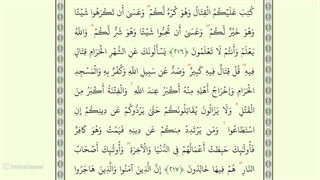 كُتِبَ عَلَيْكُمُ الْقِتَالُ وَهُوَ كُرْهٌ لَّكُمْ ۖ وَعَسَىٰ أَن تَكْرَهُوا شَيْئًا
وَهُوَ خَيْرٌ لَّكُمْ ۖ وَعَسَىٰ أَن تُحِبُّوا شَيْئًا وَهُوَ شَرٌّ لَّكُمْ ۗ وَاللَّهُ
يَعْلَمُ وَأَنتُمْ لَا تَعْلَمُونَ ﴿٢١٦﴾ يَسْأَلُونَكَ عَنِ الشَّهْرِ الْحَرَامِ قِتَالٍ
فِيهِ ۖ قُلْ قِتَالٌ فِيهِ كَبِيرٌ ۖ وَصَدٌّ عَن سَبِيلِ اللَّهِ وَكُفْرٌ بِهِ وَالْمَسْجِدِ
الْحَرَامِ وَإِخْرَاجُ أَهْلِهِ مِنْهُ أَكْبَرُ عِندَ اللَّهِ ۚ وَالْفِتْنَةُ أَكْبَرُ مِنَ
الْقَتْلِ ۗ وَلَا يَزَالُونَ يُقَاتِلُونَكُمْ حَتَّىٰ يَرُدُّوكُمْ عَن دِينِكُمْ إِنِ
اسْتَطَاعُوا ۚ وَمَن يَرْتَدِدْ مِنكُمْ عَن دِينِهِ فَيَمُتْ وَهُوَ كَافِرٌ
فَأُولَٰئِكَ حَبِطَتْ أَعْمَالُهُمْ فِي الدُّنْيَا وَالْآخِرَةِ ۖ وَأُولَٰئِكَ أَصْحَابُ
النَّارِ ۖ هُمْ فِيهَا خَالِدُونَ ﴿٢١٧﴾ إِنَّ الَّذِينَ آمَنُوا وَالَّذِينَ هَاجَرُوا